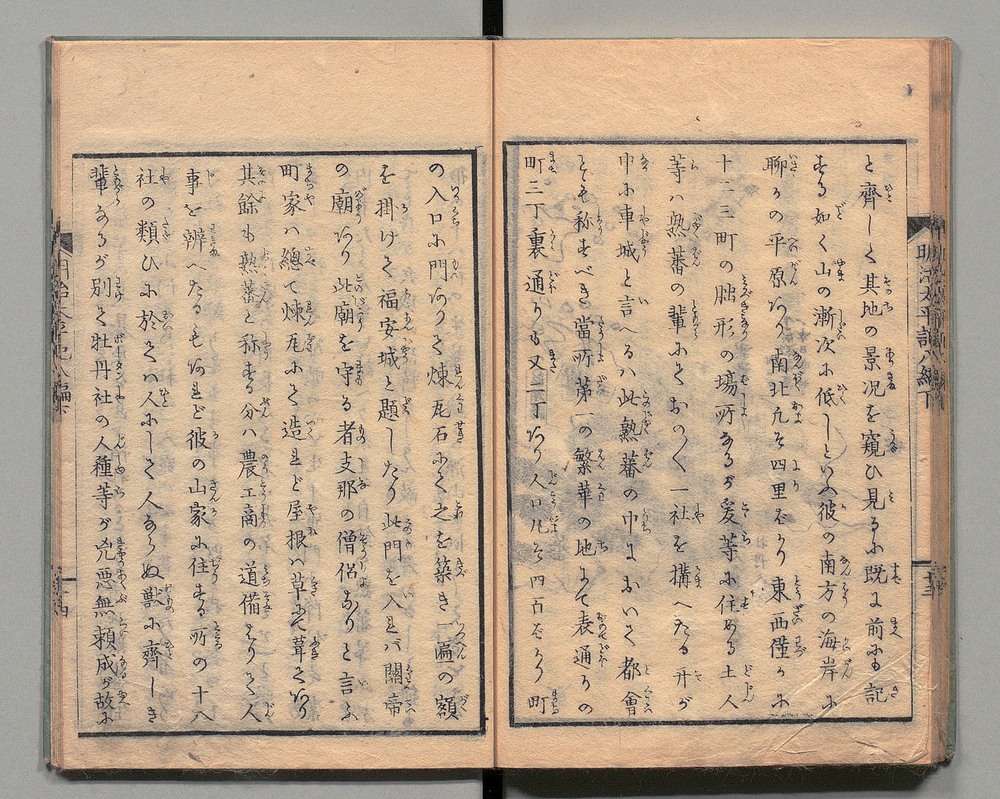 と齊しく其地の景況を窺ひ見るに既に前にも記
する如く山の漸次に低しといへ彼の南方の海岸に
聊かの平原あり南北凡そ四里ばかり東西僅かに
十二三町の䏰形の塲所あるが爰等に住める土人
等ハ熟蕃の輩にておの〱一社を搆へたる中が
中に車城と言へるハ此熟蕃の中において都會
とも称すべき當所第一の繁華の地にて表通りの
町三丁裏通りも又二丁あり人口凡そ四百ばかり町
の入口に門あり煉瓦石にて之を築き一匾の額
を掛けて福安城と題したり此門を入れバ關帝
の廟あり此廟を守る者支那の僧侶なりと言ふ
町家ハ總て煉瓦にて造れど屋根ハ草にて葺てあり
其餘も熟蕃と称する分ハ農工商の道備はりて人
事を辨へたるもあれど彼の山家に住する所の十八
社の類ひに於てハ人にして人ならぬ獣に齊しき
輩なるが別て牡丹社の人種等が兇悪無頼成が故に
明治太平記八編下
十三
明治太平記八編下
十四